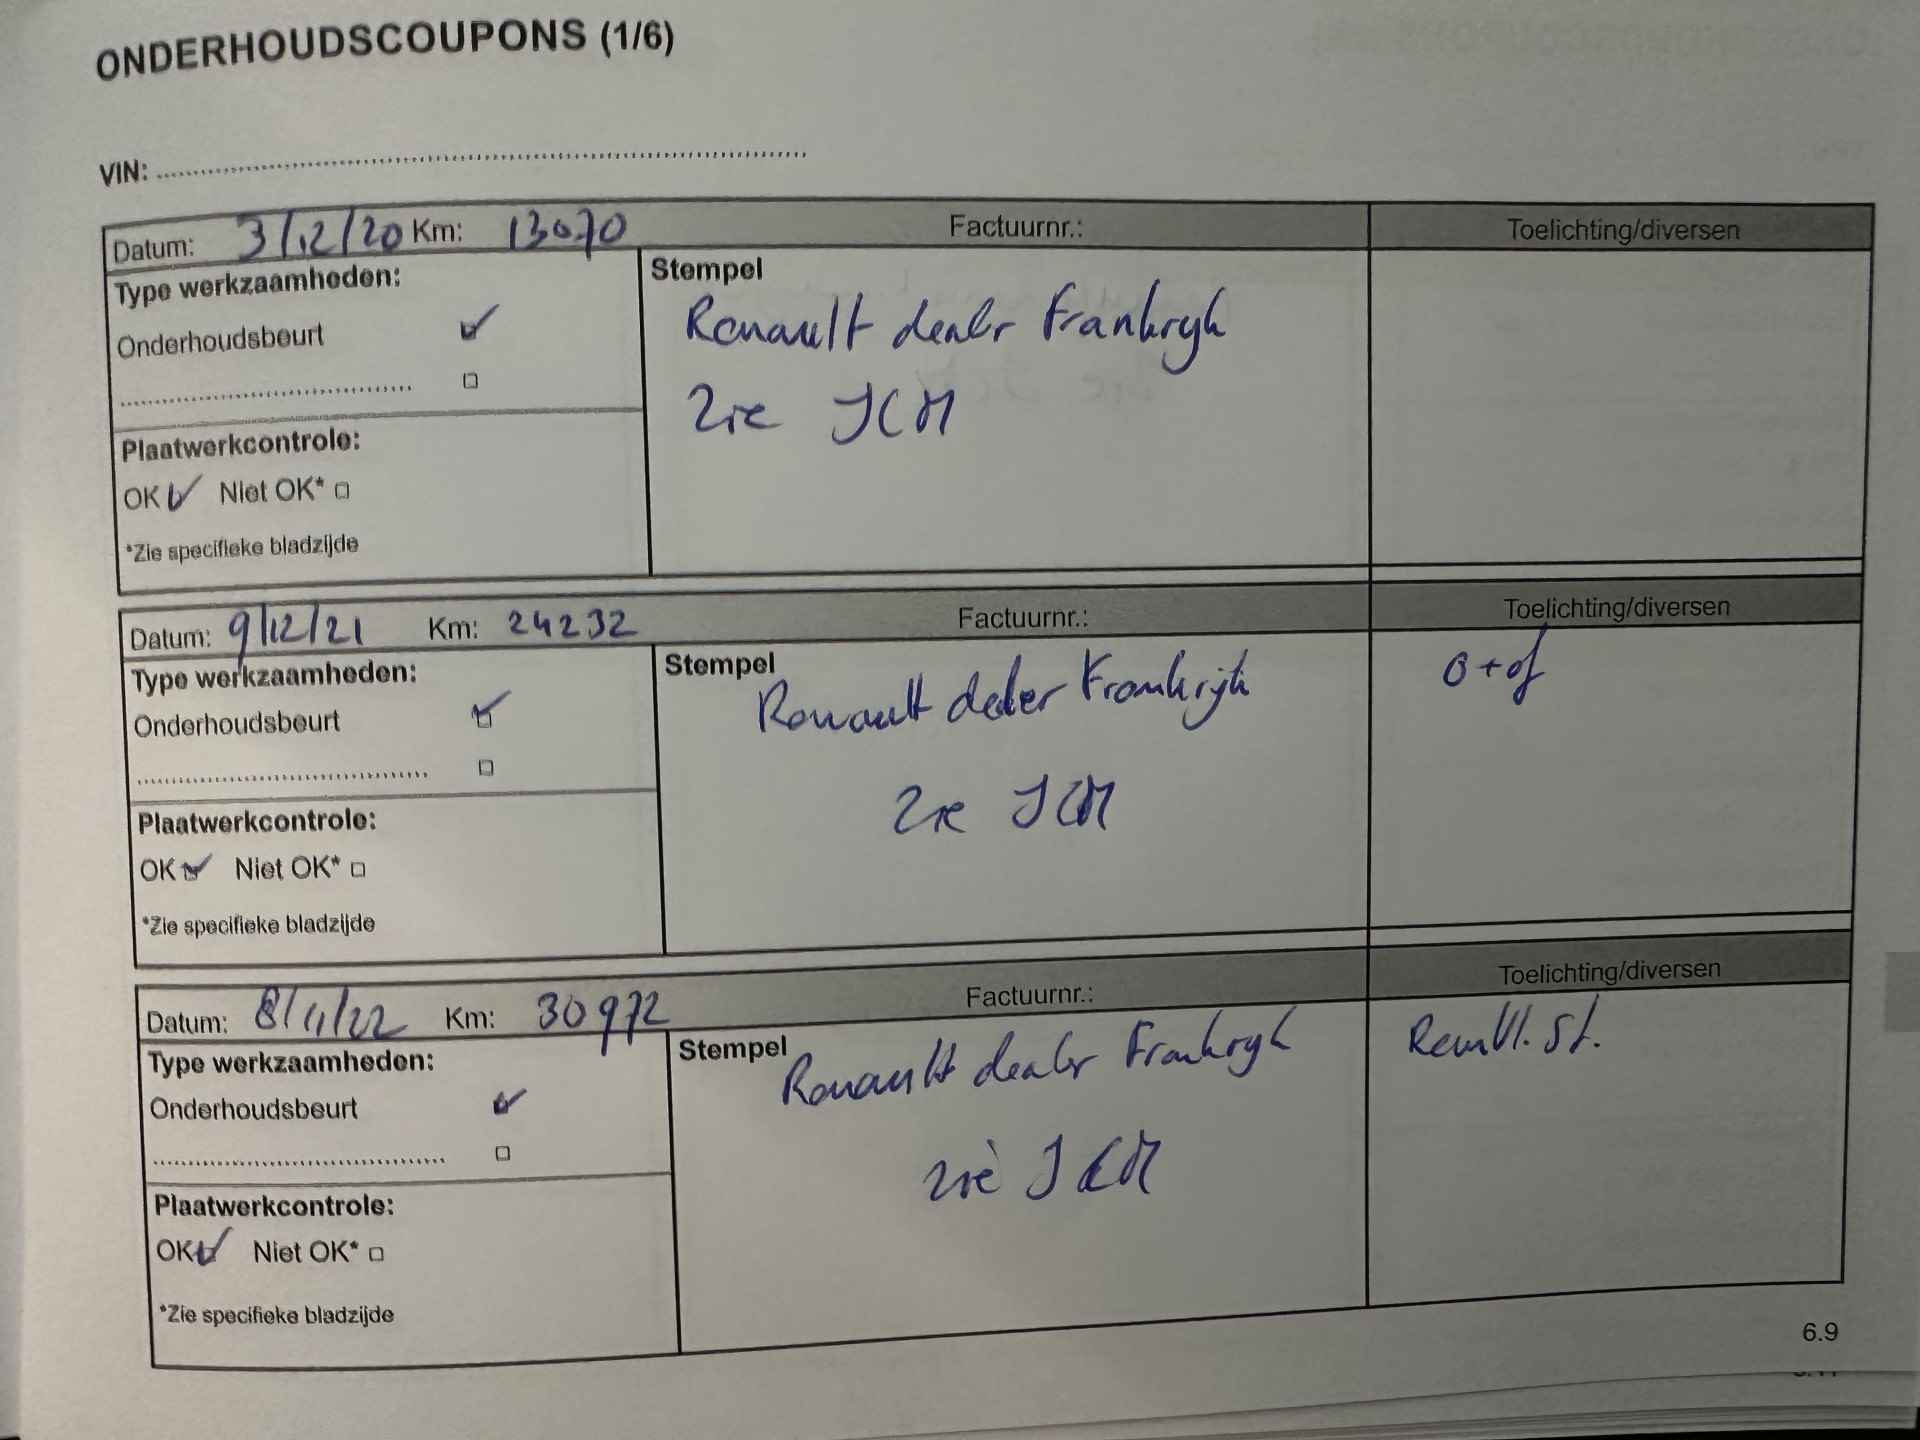 ONDERHOUDSCOUPONS (1/6)
VIN:
Datum: 3/12/20 Km: 13070 Factuurnr.: Toelichting/diversen
Type werkzaamheden:
Stempel
Onderhoudsbeurt
Renault dealer Frankryk
Zie ICM
Plaatwerkcontrole:
OK Niet OK*
*Zie specifieke bladzijde
Datum: 9/12/21 Km: 24232 Factuurnr.: Toelichting/diversen
Type werkzaamheden:
Stempel
Onderhoudsbeurt
Renault dealer Frankrijk
O + of
Zie ICM
Plaatwerkcontrole:
OK Niet OK*
*Zie specifieke bladzijde
Datum: 8/11/22 Km: 30972 Factuurnr.: Toelichting/diversen
Type werkzaamheden:
Stempel
Onderhoudsbeurt
Renault dealer Frankryk
Remvl. St.
zie ICM
Plaatwerkcontrole:
OK Niet OK*
*Zie specifieke bladzijde
6.9